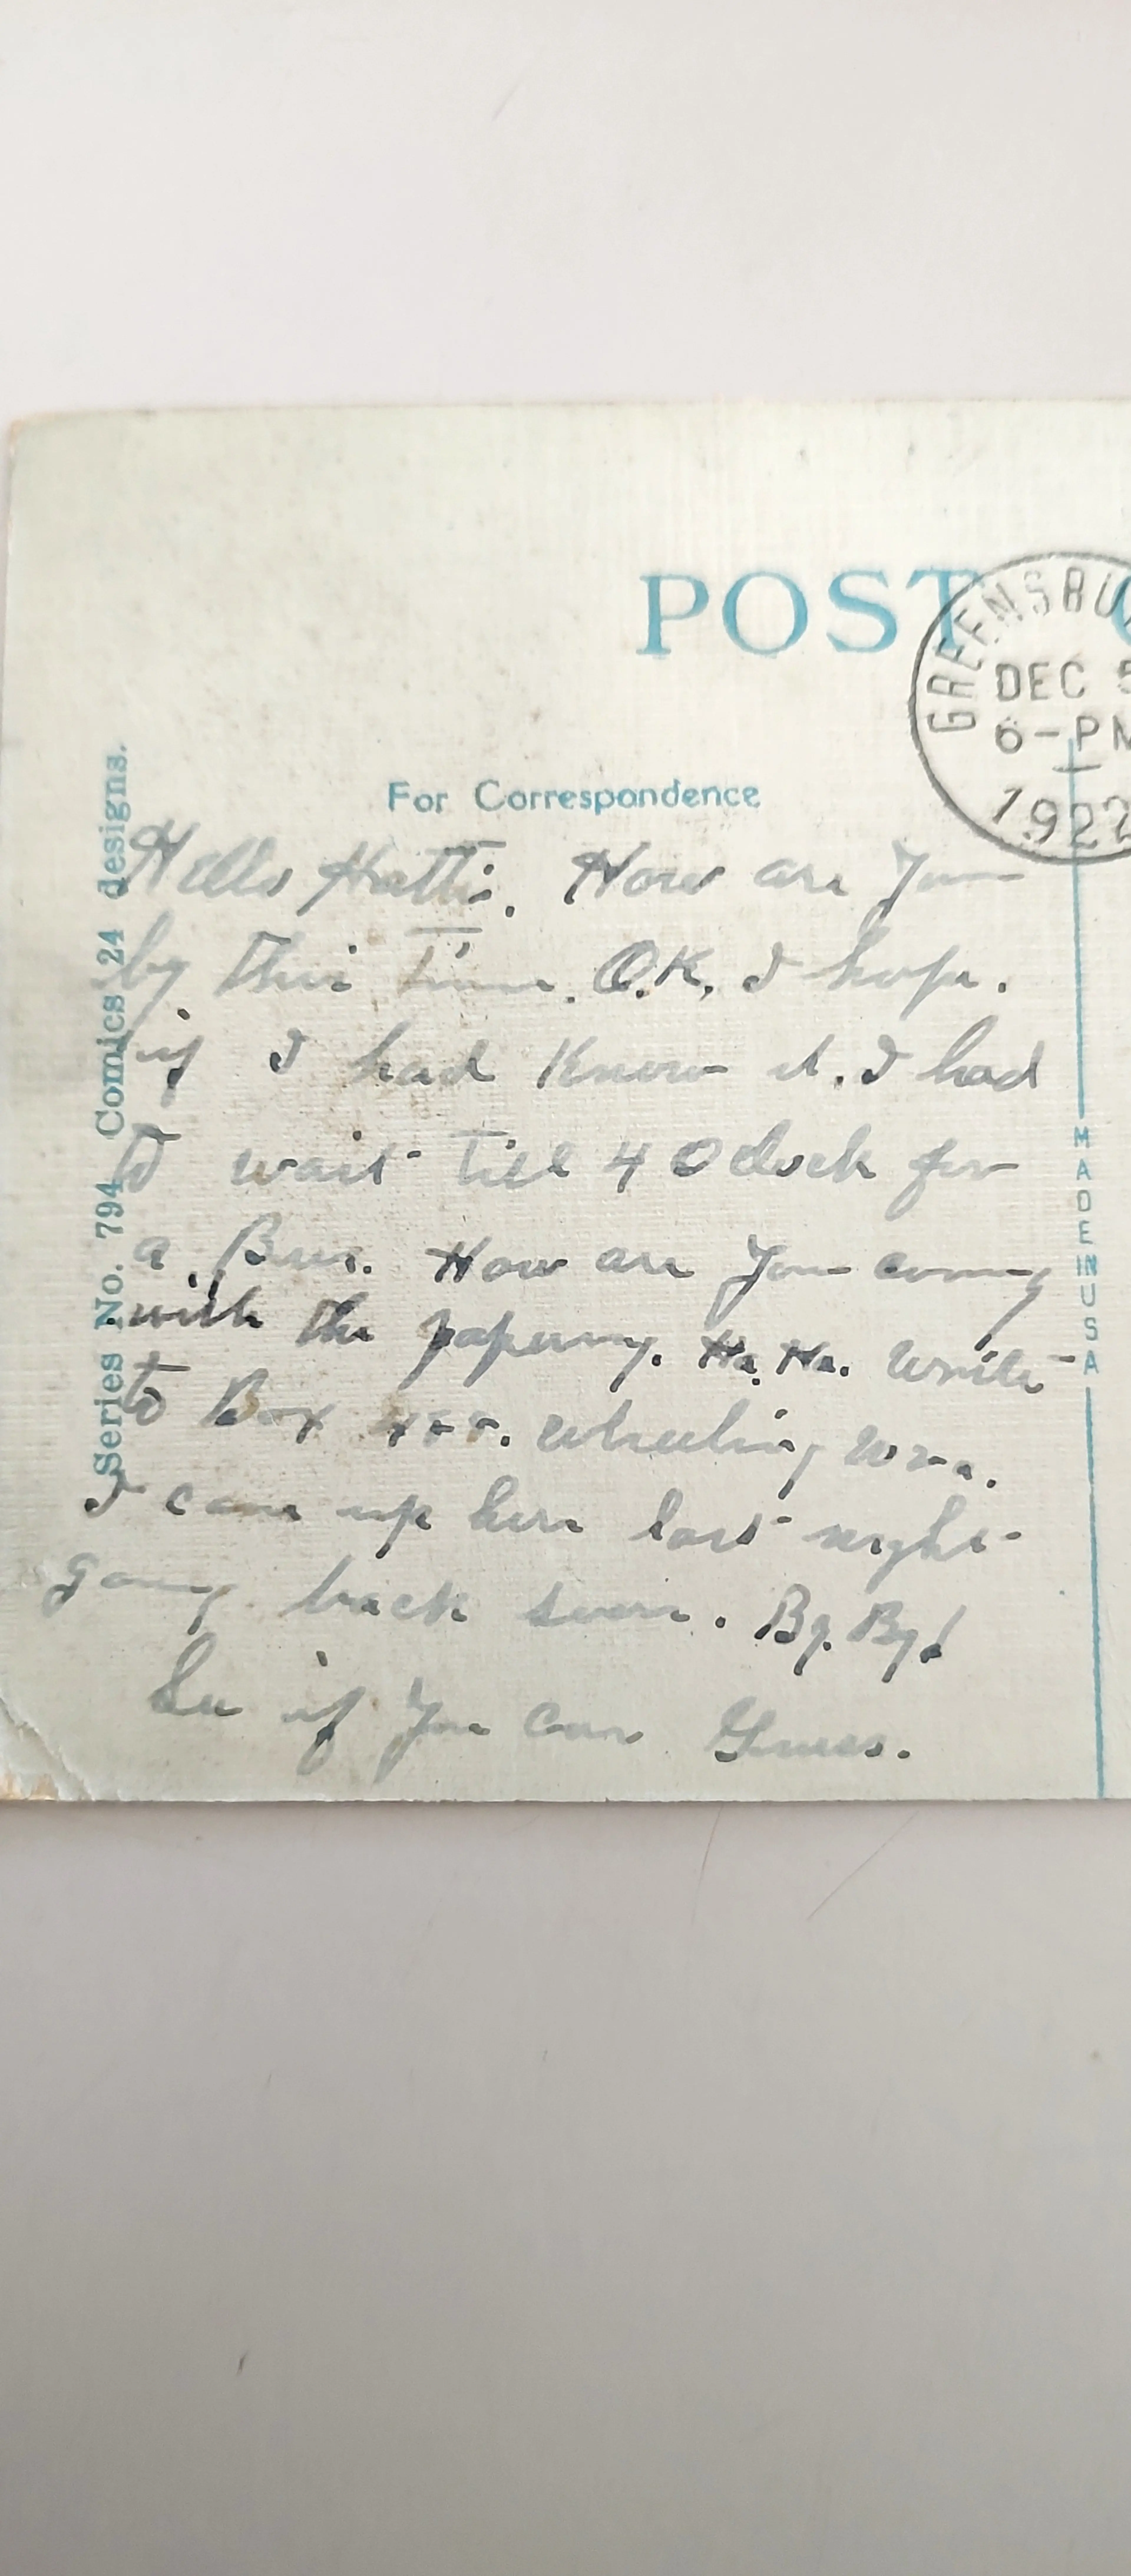 POST
GREENSBU
DEC 5
6-PM
1922
For Correspondence
Series No. 794 Comics 24 designs.
MADE IN USA
Hello Hattie. How are you
by this time. O.K. I hope.
if I had Know it. I had
to wait till 4 O clock for
a Bus. How are you coming
with the papering. Ha. Ha. write
to Box Wheeling W Va.
I came up here last night
going back soon. By. By!
See if you can Guess.